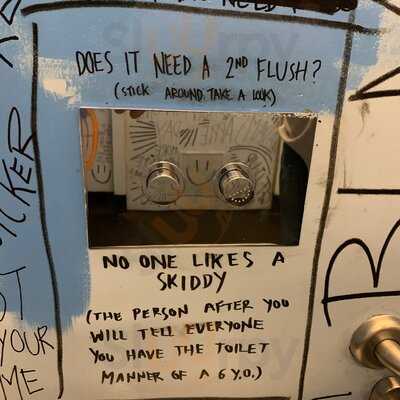 DOES IT NEED A 2ND FLUSH?
(STICK AROUND TAKE A LOOK)
NO ONE LIKES A
SKIDDY
(THE PERSON AFTER YOU
WILL TELL EVERYONE
YOU HAVE THE TOILET
MANNER OF A 6 Y.O.)
YOUR
ME